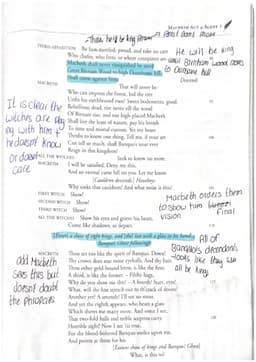 MACBETH ACT 4 SCENE 1
THIRD APPARITION Be lion-mettled, proud, and take no care
Who chafes, who frets, or where conspirers are:
Macbeth shall never vanquished be until
Great Birnam Wood to high Dunsinane Hill
Shall come against him. Descend
MACBETH That will never be:
Who can impress the forest, bid the tree
Unfix his earthbound root? Sweet bodements, good.
Rebellious dead, rise never till the wood
Of Birnam rise, and our high-placed Macbeth
Shall live the lease of nature, pay his breath
To time and mortal custom. Yet my heart
Throbs to know one thing. Tell me, if your art
Can tell so much, shall Banquo's issue ever
Reign in this kingdom?
ALL THE WITCHES Seek to know no more.
MACBETH I will be satisfied. Deny me this,
And an eternal curse fall on you. Let me know
Why sinks that cauldron? And what noise is this?
FIRST WITCH Show!
SECOND WITCH Show!
THIRD WITCH Show!
ALL THE WITCHES Show his eyes and grieve his heart,
Come like shadows, so depart.
MACBETH Thou art too like the spirit of Banquo. Down!
Thy crown does sear mine eyeballs. And thy hair,
Thou other gold-bound brow, is like the first;
A third, is like the former. – Filthy hags,
Why do you show me this? – A fourth? Start, eyes!
What, will the line stretch out to th'crack of doom?
Another yet? A seventh? I'll see no more.
And yet the eighth appears, who bears a glass
Which shows me many more. And some I see,
That two-fold balls and treble sceptres carry.
Horrible sight! Now I see 'tis true,
For the blood-boltered Banquo smiles upon me,
And points at them for his.
What, is this so?
He will be king
until Birnham wood comes
to Dunsinane hill
It is clear the
witches are play
ing with him &
he doesn't know
or doesn't
care
Macbeth orders them
to show him
final
vision
All of
Banquo's descendants
looks like they will
all be kings
odd Macbeth
saw this but
doesn't doubt
the